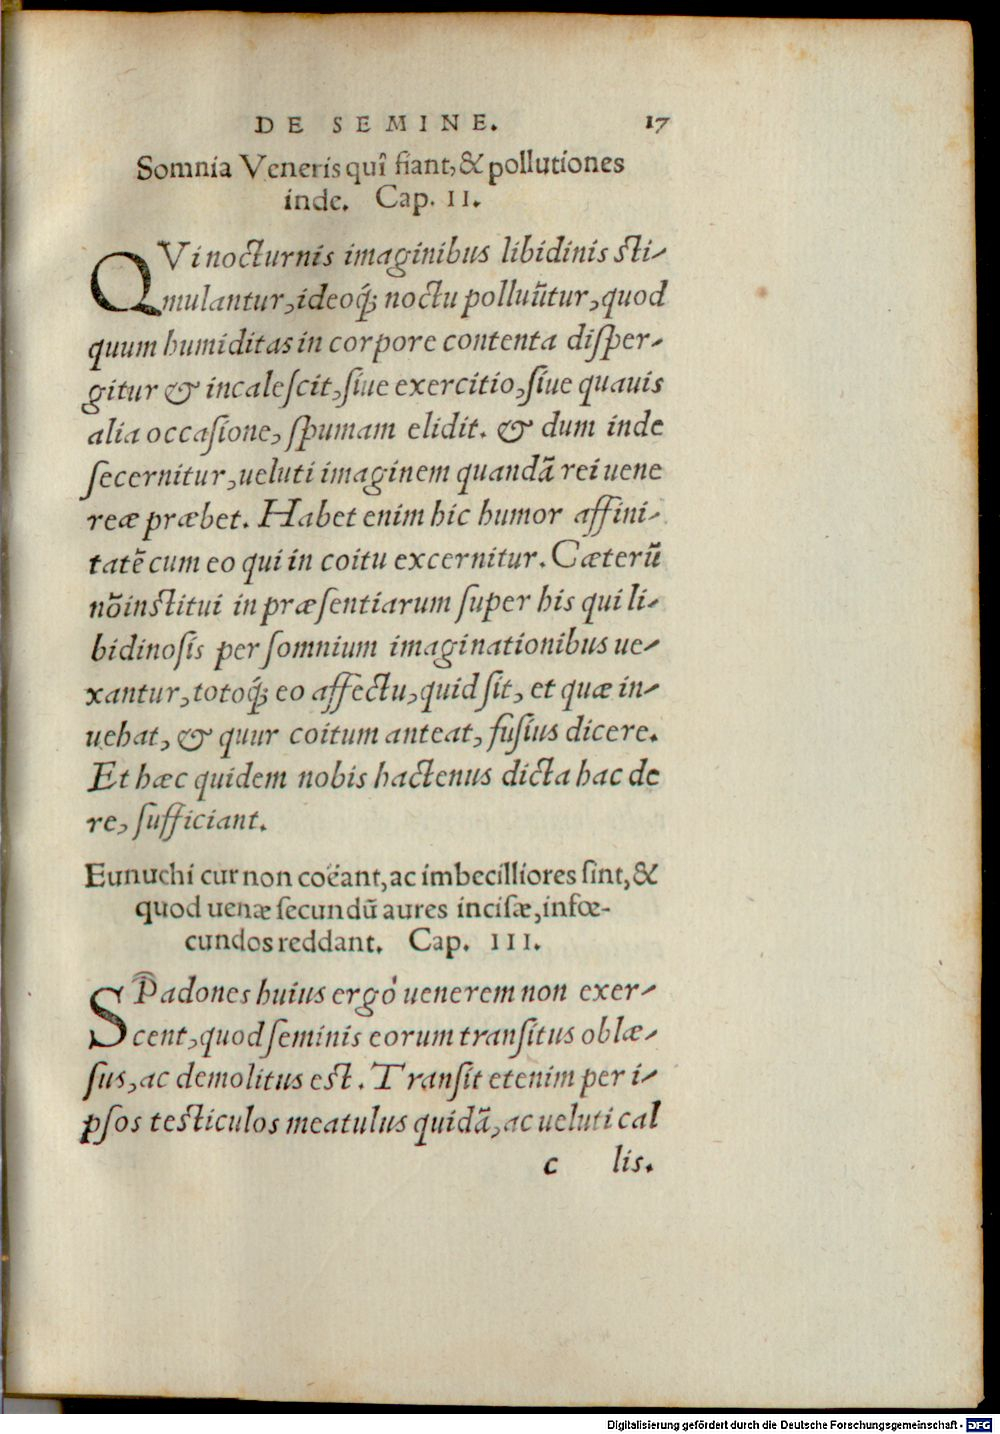 DE SEMINE. 17
Somnia Veneris quî fiant, & pollutiones
inde. Cap. II.
QVi nocturnis imaginibus libidinis sti-
mulantur, ideoq́; noctu polluũtur, quod
quum humiditas in corpore contenta disper-
gitur & incalescit, siue exercitio, siue quauis
alia occasione, spumam elidit. & dum inde
secernitur, ueluti imaginem quandã rei uene
reæ præbet. Habet enim hic humor affini-
tatẽ cum eo qui in coitu excernitur. Cæterũ
nõ institui in præsentiarum super his qui li-
bidinosis per somnium imaginationibus ue-
xantur, totoq́; eo affectu, quid sit, et quæ in-
uehat, & quur coitum anteat, fusius dicere.
Et hæc quidem nobis hactenus dicta hac de
re, sufficiant.
Eunuchi cur non coëant, ac imbecilliores sint, &
quod uenæ secundũ aures incisæ, infœ-
cundos reddant. Cap. III.
SPadones huius ergò uenerem non exer-
cent, quod seminis eorum transitus oblæ-
sus, ac demolitus est. Transit etenim per i-
psos testiculos meatulus quidã, ac ueluti cal
c lis.
Digitalisierung gefördert durch die Deutsche Forschungsgemeinschaft - DFG